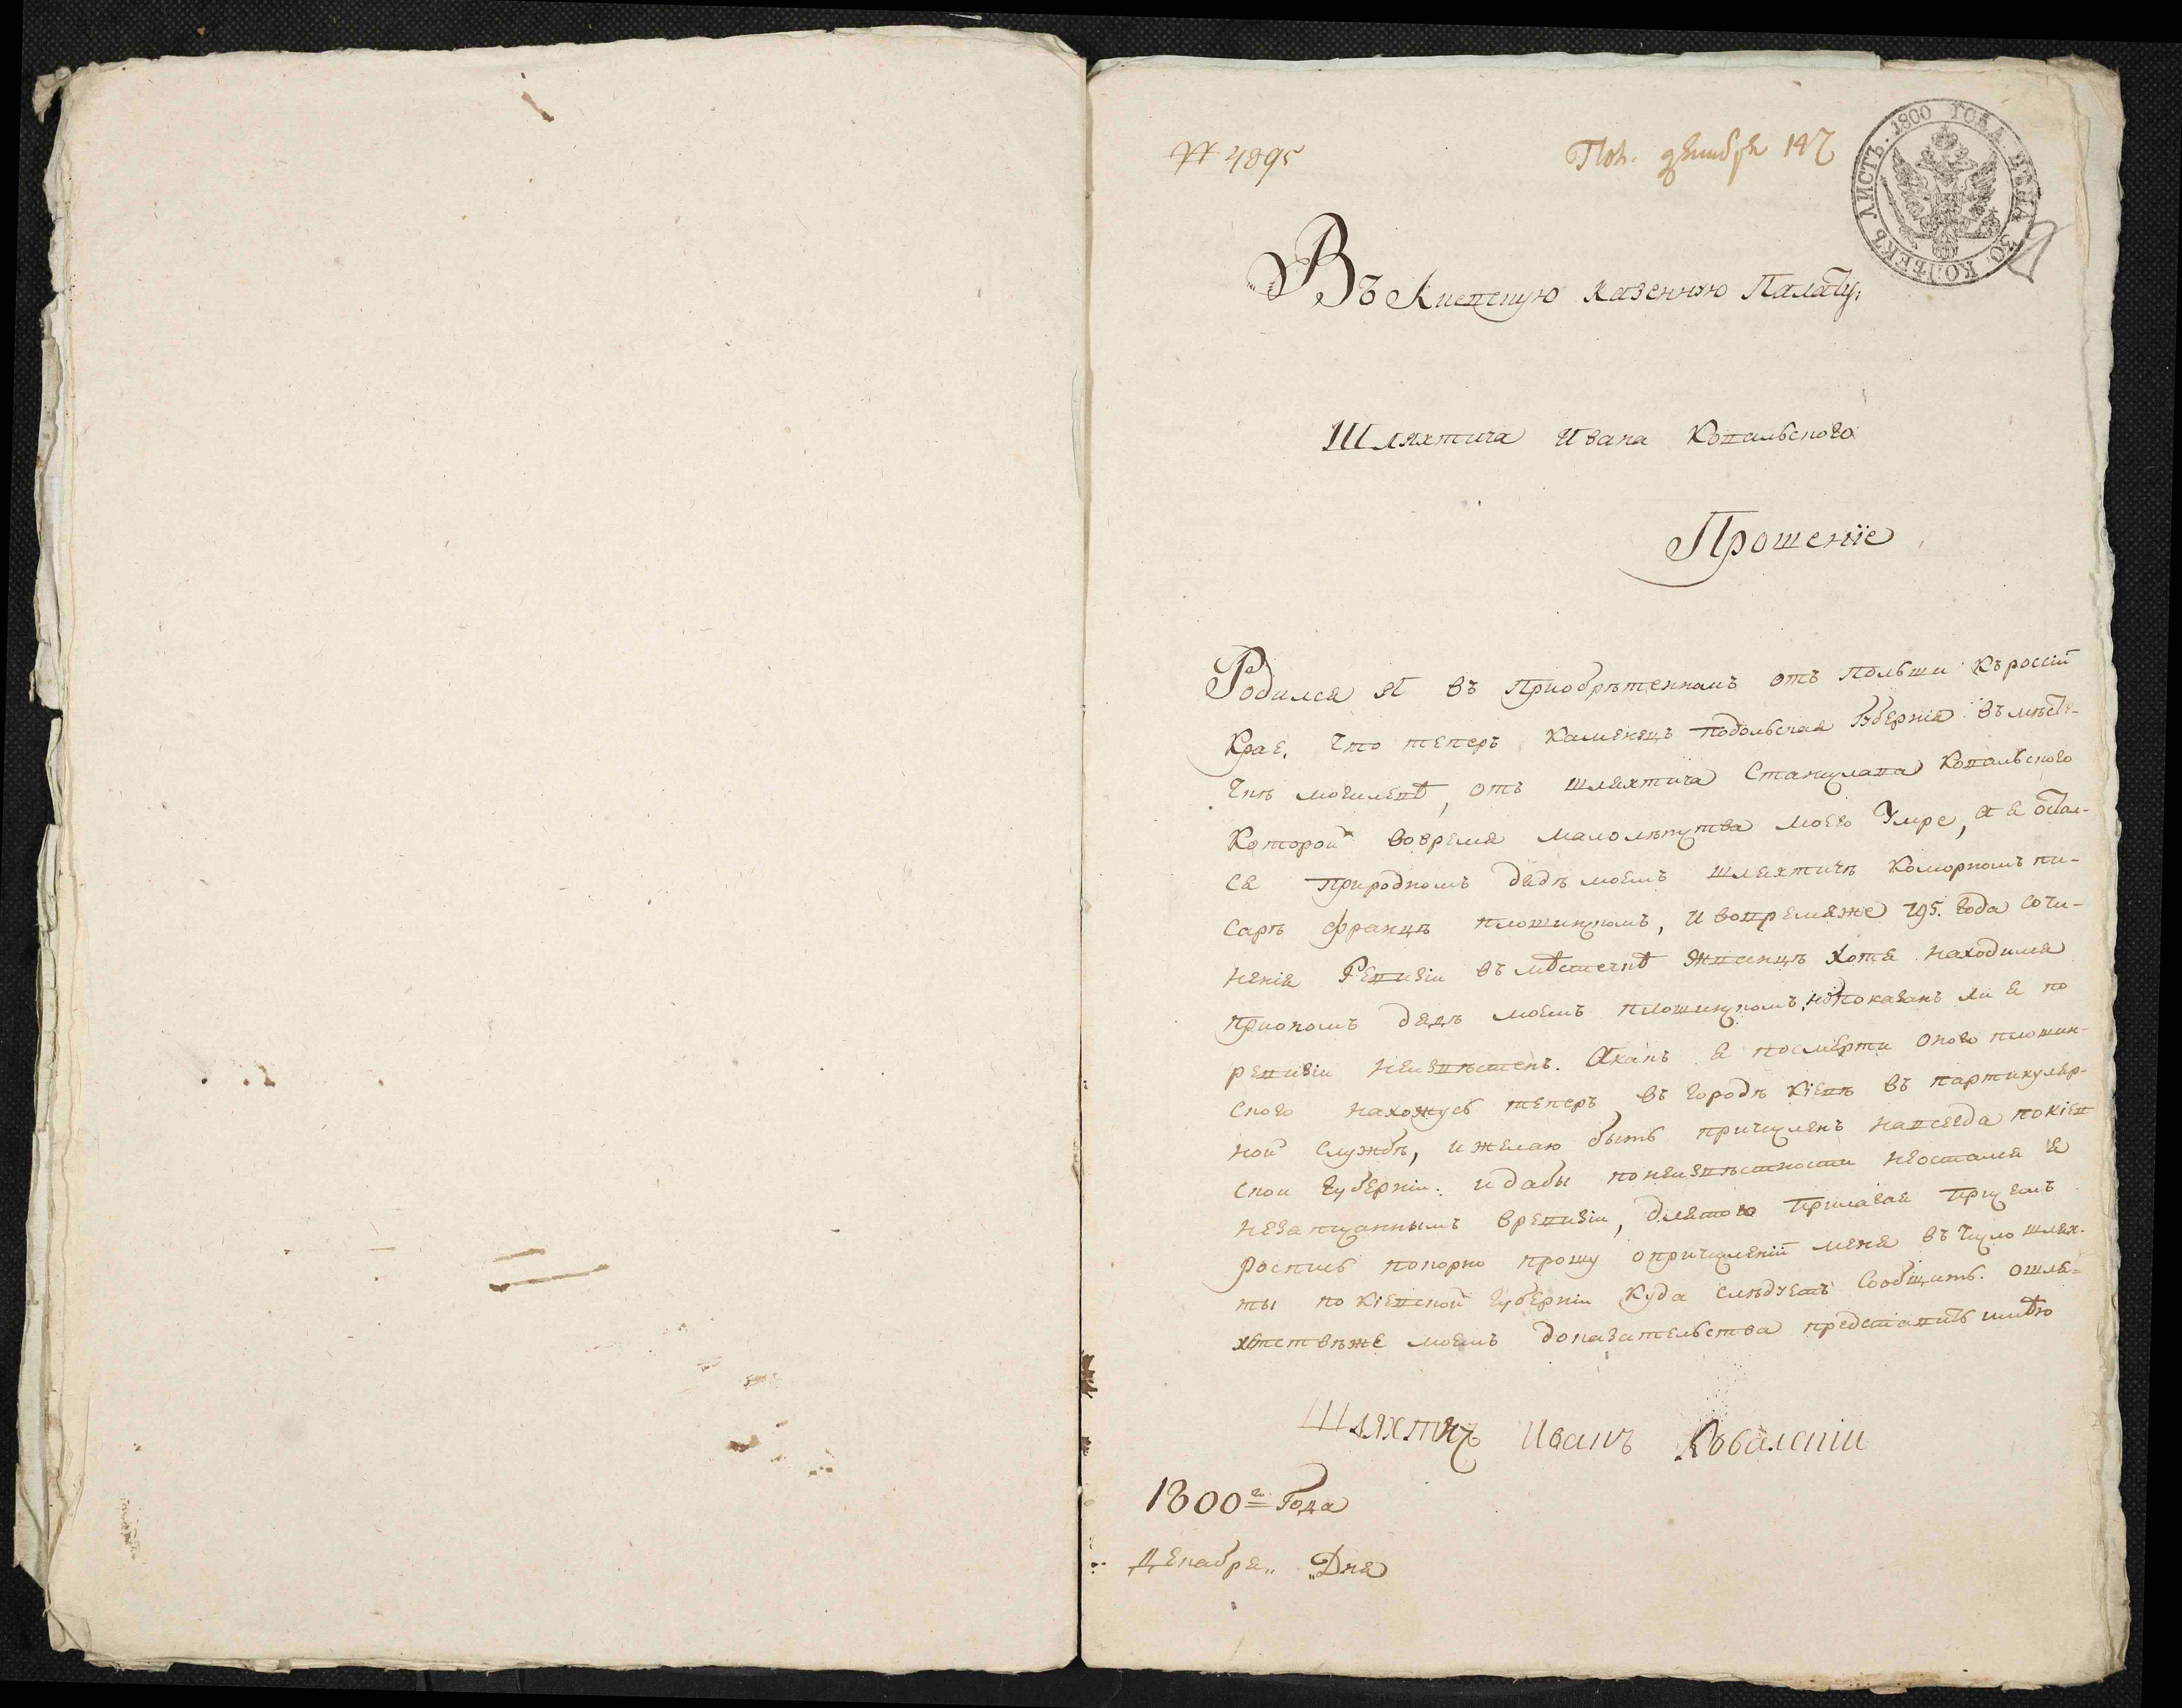 № 4895
Пол. декабря 14
ЛИСТЪ. 1800 ГОДА. ЦѢНА 30. КОПѢЕКЪ
Въ Киевскую казенную Палату,
Шляхтича Ивана Ковальского
Прошеніе
Родился я въ приобрѣтенномъ отъ польши къ россіи
крае, что теперь каменецъ подольская губернія въ мѣсте-
чкѣ могилевѣ, отъ шляхтича Станислава Ковальского
которой вовремя малолѣтства моего умре, а я остал-
ся природномъ дядѣ моемъ шляхтичѣ коморномъ пи-
сарѣ францѣ плошинскомъ, и вовремяже 795. года сочи-
ненія ревизіи въ мѣстечкѣ хотя находился
приономъ дядѣ моемъ плошинскомъ, но показанъ ли я по
ревизіи неизвѣстенъ. Акакъ я посмерти оного плошин-
ского нахожусь теперь въ городѣ кіевѣ въ партикуляр-
ной службѣ, и желаю быть причисленъ навсегда покіев
ской губерніи. и дабы понеизвѣстности неостался я
незаписаннымъ вревизіи, длятого прилагая присемъ
роспись покорно прошу опричисленіи меня въ число шлях-
ты по кіевской губерніи куда слѣдуетъ сообщить. ошля-
хетствѣже моемъ доказательства представить имѣю
Шляхтичъ Иванъ Ковалскіи
1800го Года
декабря „ „ Дня